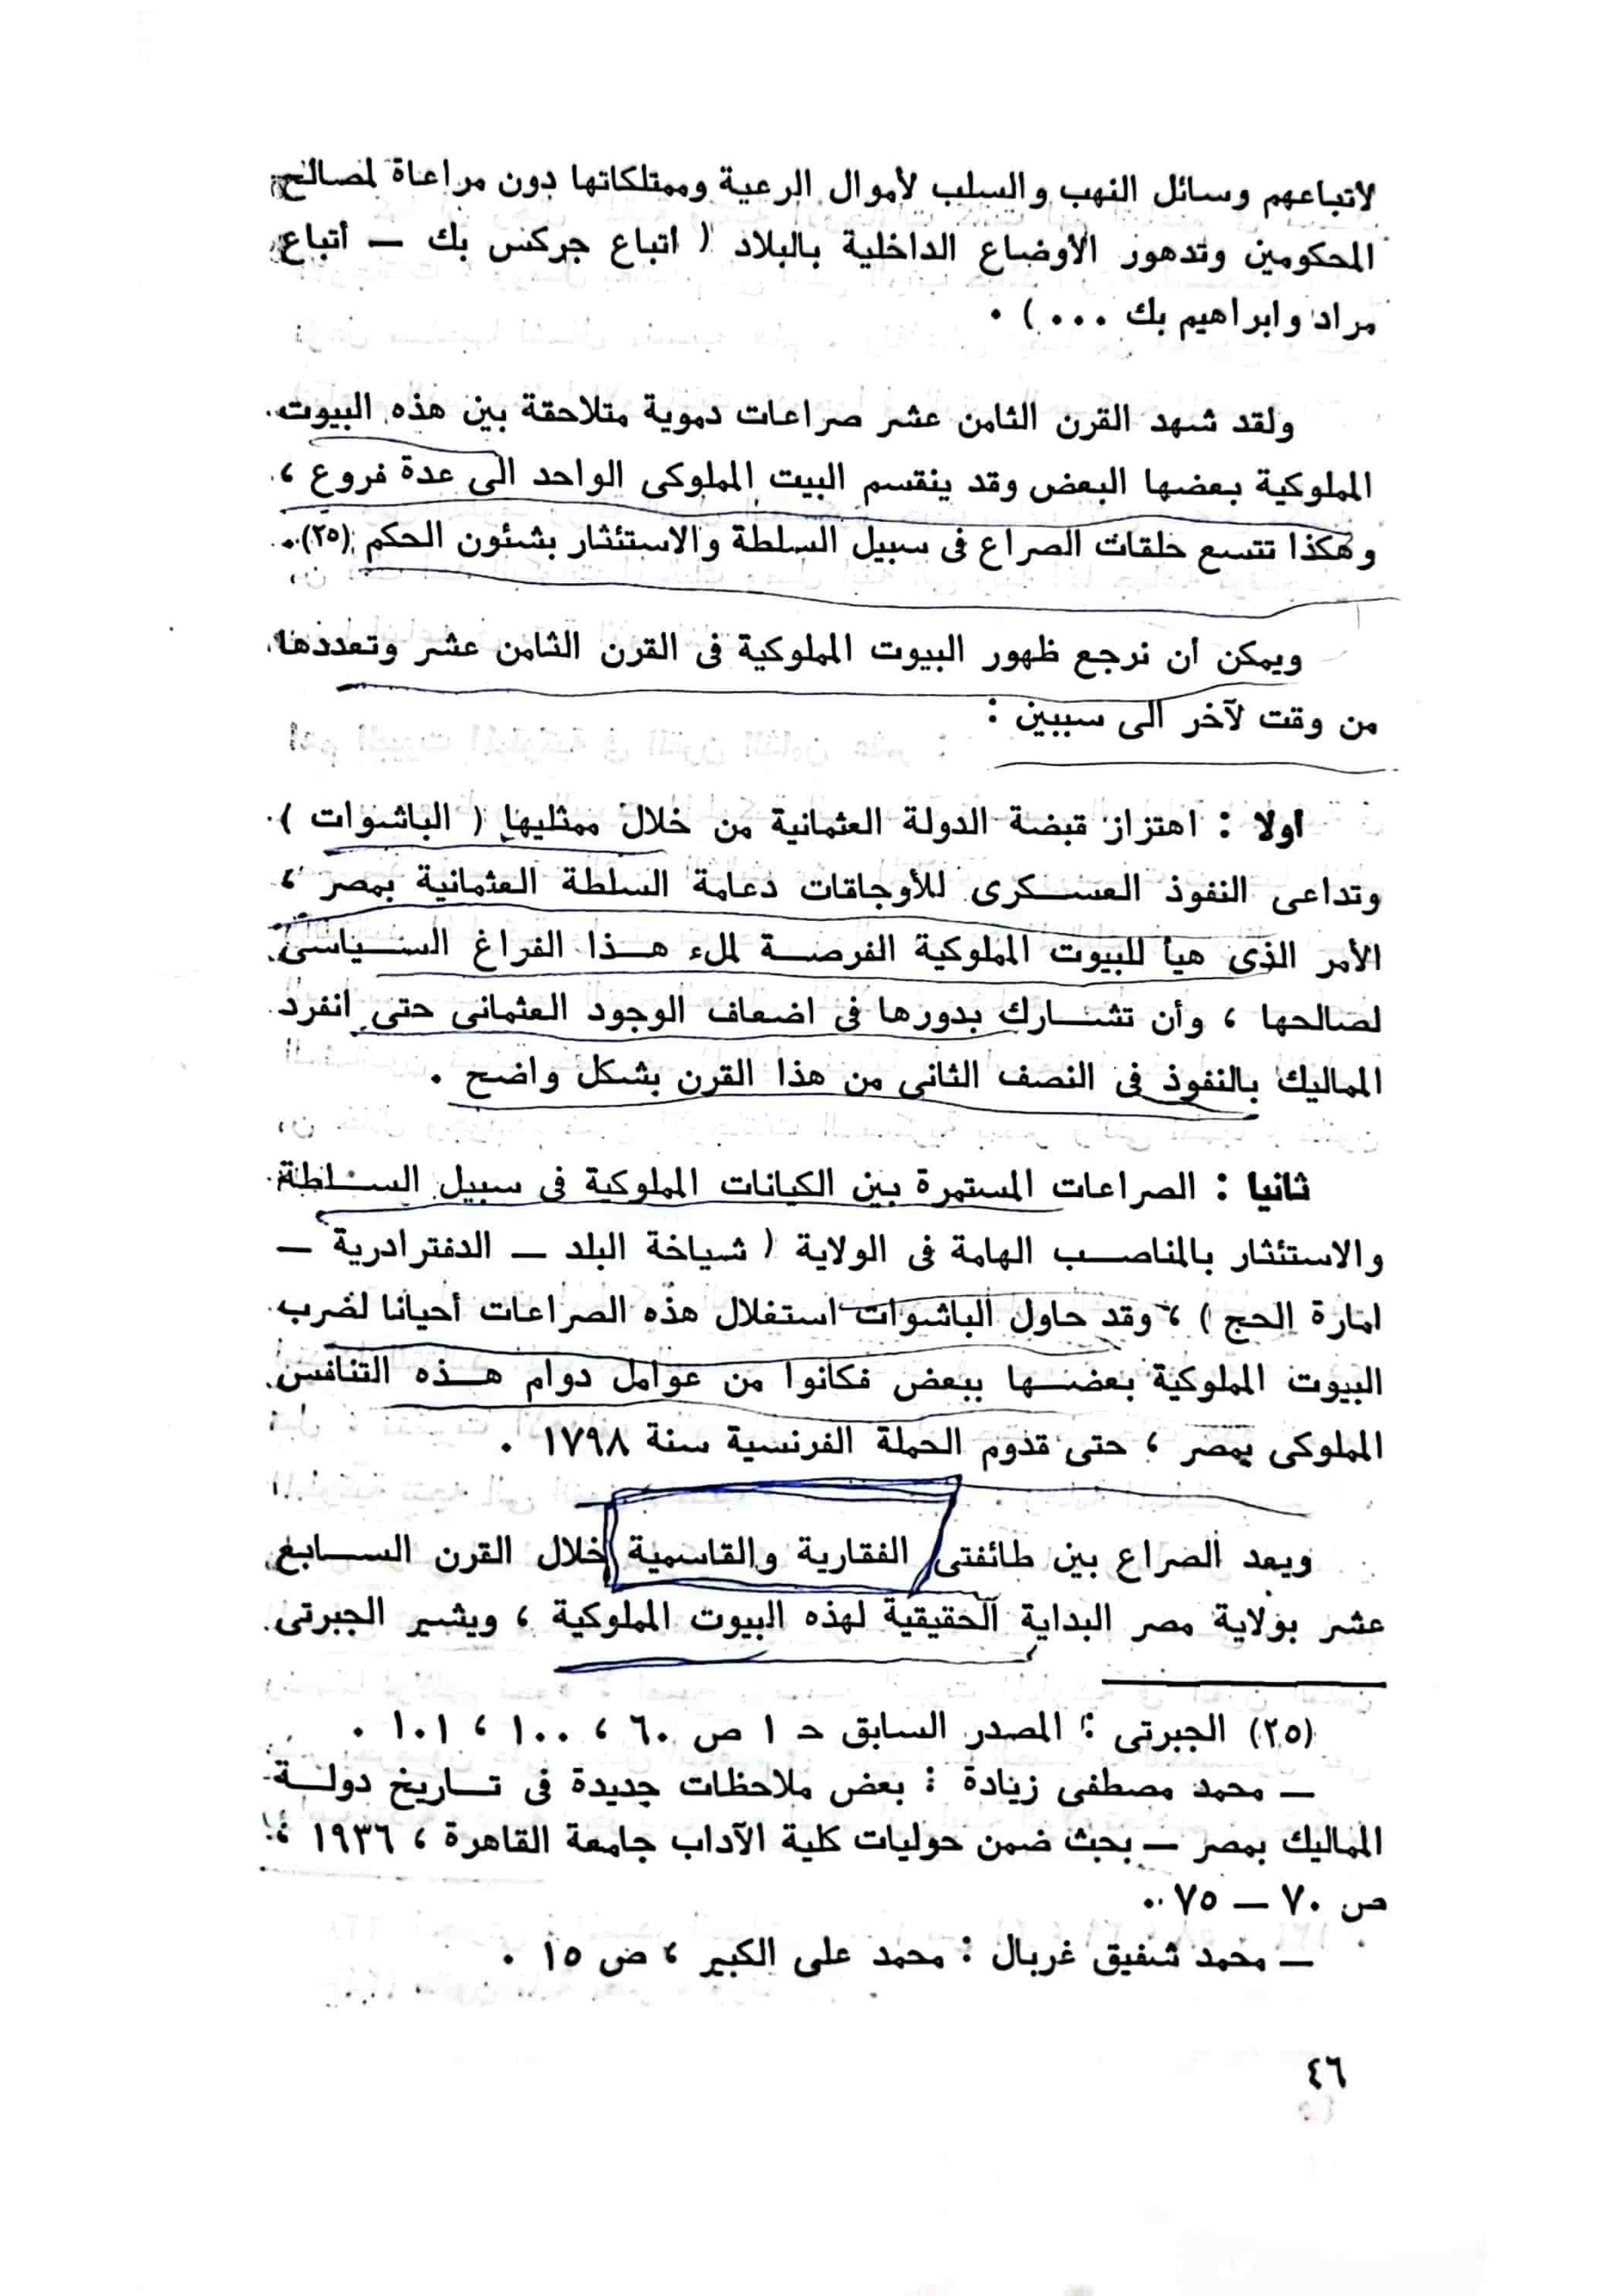 لأتباعهم وسائل النهب والسلب لأموال الرعية وممتلكاتها دون مراعاة لمصالح
المحكومين وتدهور الأوضاع الداخلية بالبلاد ( أتباع جركس بك — أتباع
مراد وابراهيم بك ... ) .
ولقد شهد القرن الثامن عشر صراعات دموية متلاحقة بين هذه البيوت
المملوكية بعضها البعض وقد ينقسم البيت المملوكى الواحد الى عدة فروع ،
وهكذا تتسع حلقات الصراع فى سبيل السلطة والاستئثار بشئون الحكم (٢٥).
ويمكن أن نرجع ظهور البيوت المملوكية فى القرن الثامن عشر وتعددها
من وقت لآخر الى سببين :
أولا : اهتزاز قبضة الدولة العثمانية من خلال ممثليها ( الباشوات )
وتداعى النفوذ العسكرى للأوجاقات دعامة السلطة العثمانية بمصر ،
الأمر الذى هيأ للبيوت المملوكية الفرصة لملء هذا الفراغ السياسى
لصالحها ، وأن تشارك بدورها فى اضعاف الوجود العثمانى حتى انفرد
المماليك بالنفوذ فى النصف الثانى من هذا القرن بشكل واضح .
ثانيا : الصراعات المستمرة بين الكيانات المملوكية فى سبيل السلطة
والاستئثار بالمناصب الهامة فى الولاية ( شياخة البلد — الدفتردارية —
امارة الحج ) ، وقد حاول الباشوات استغلال هذه الصراعات أحيانا لضرب
البيوت المملوكية بعضها ببعض فكانوا من عوامل دوام هذه التنافس
المملوكى بمصر ، حتى قدوم الحملة الفرنسية سنة ١٧٩٨ .
ويعد الصراع بين طائفتى الفقارية والقاسمية خلال القرن السابع
عشر بولاية مصر البداية الحقيقية لهذه البيوت المملوكية ، ويشير الجبرتى
(٢٥) الجبرتى : المصدر السابق حـ ١ ص ٦٠ ، ١٠٠ ، ١٠١ .
— محمد مصطفى زيادة : بعض ملاحظات جديدة فى تاريخ دولة
المماليك بمصر — بحث ضمن حوليات كلية الآداب جامعة القاهرة ، ١٩٣٦ ،
ص ٧٠ — ٧٥ .
— محمد شفيق غربال : محمد على الكبير ، ص ١٥ .
٤٦